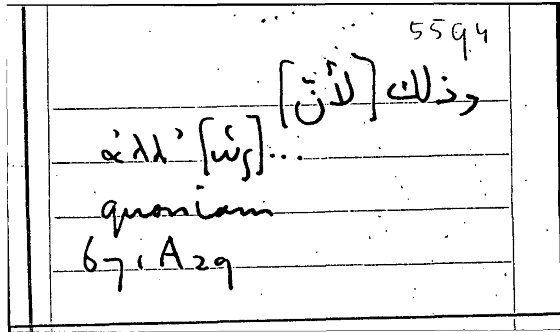 5594
وذلك [لأنّ]
ἀλλ' [ὡς]...
quoniam
67, A 29